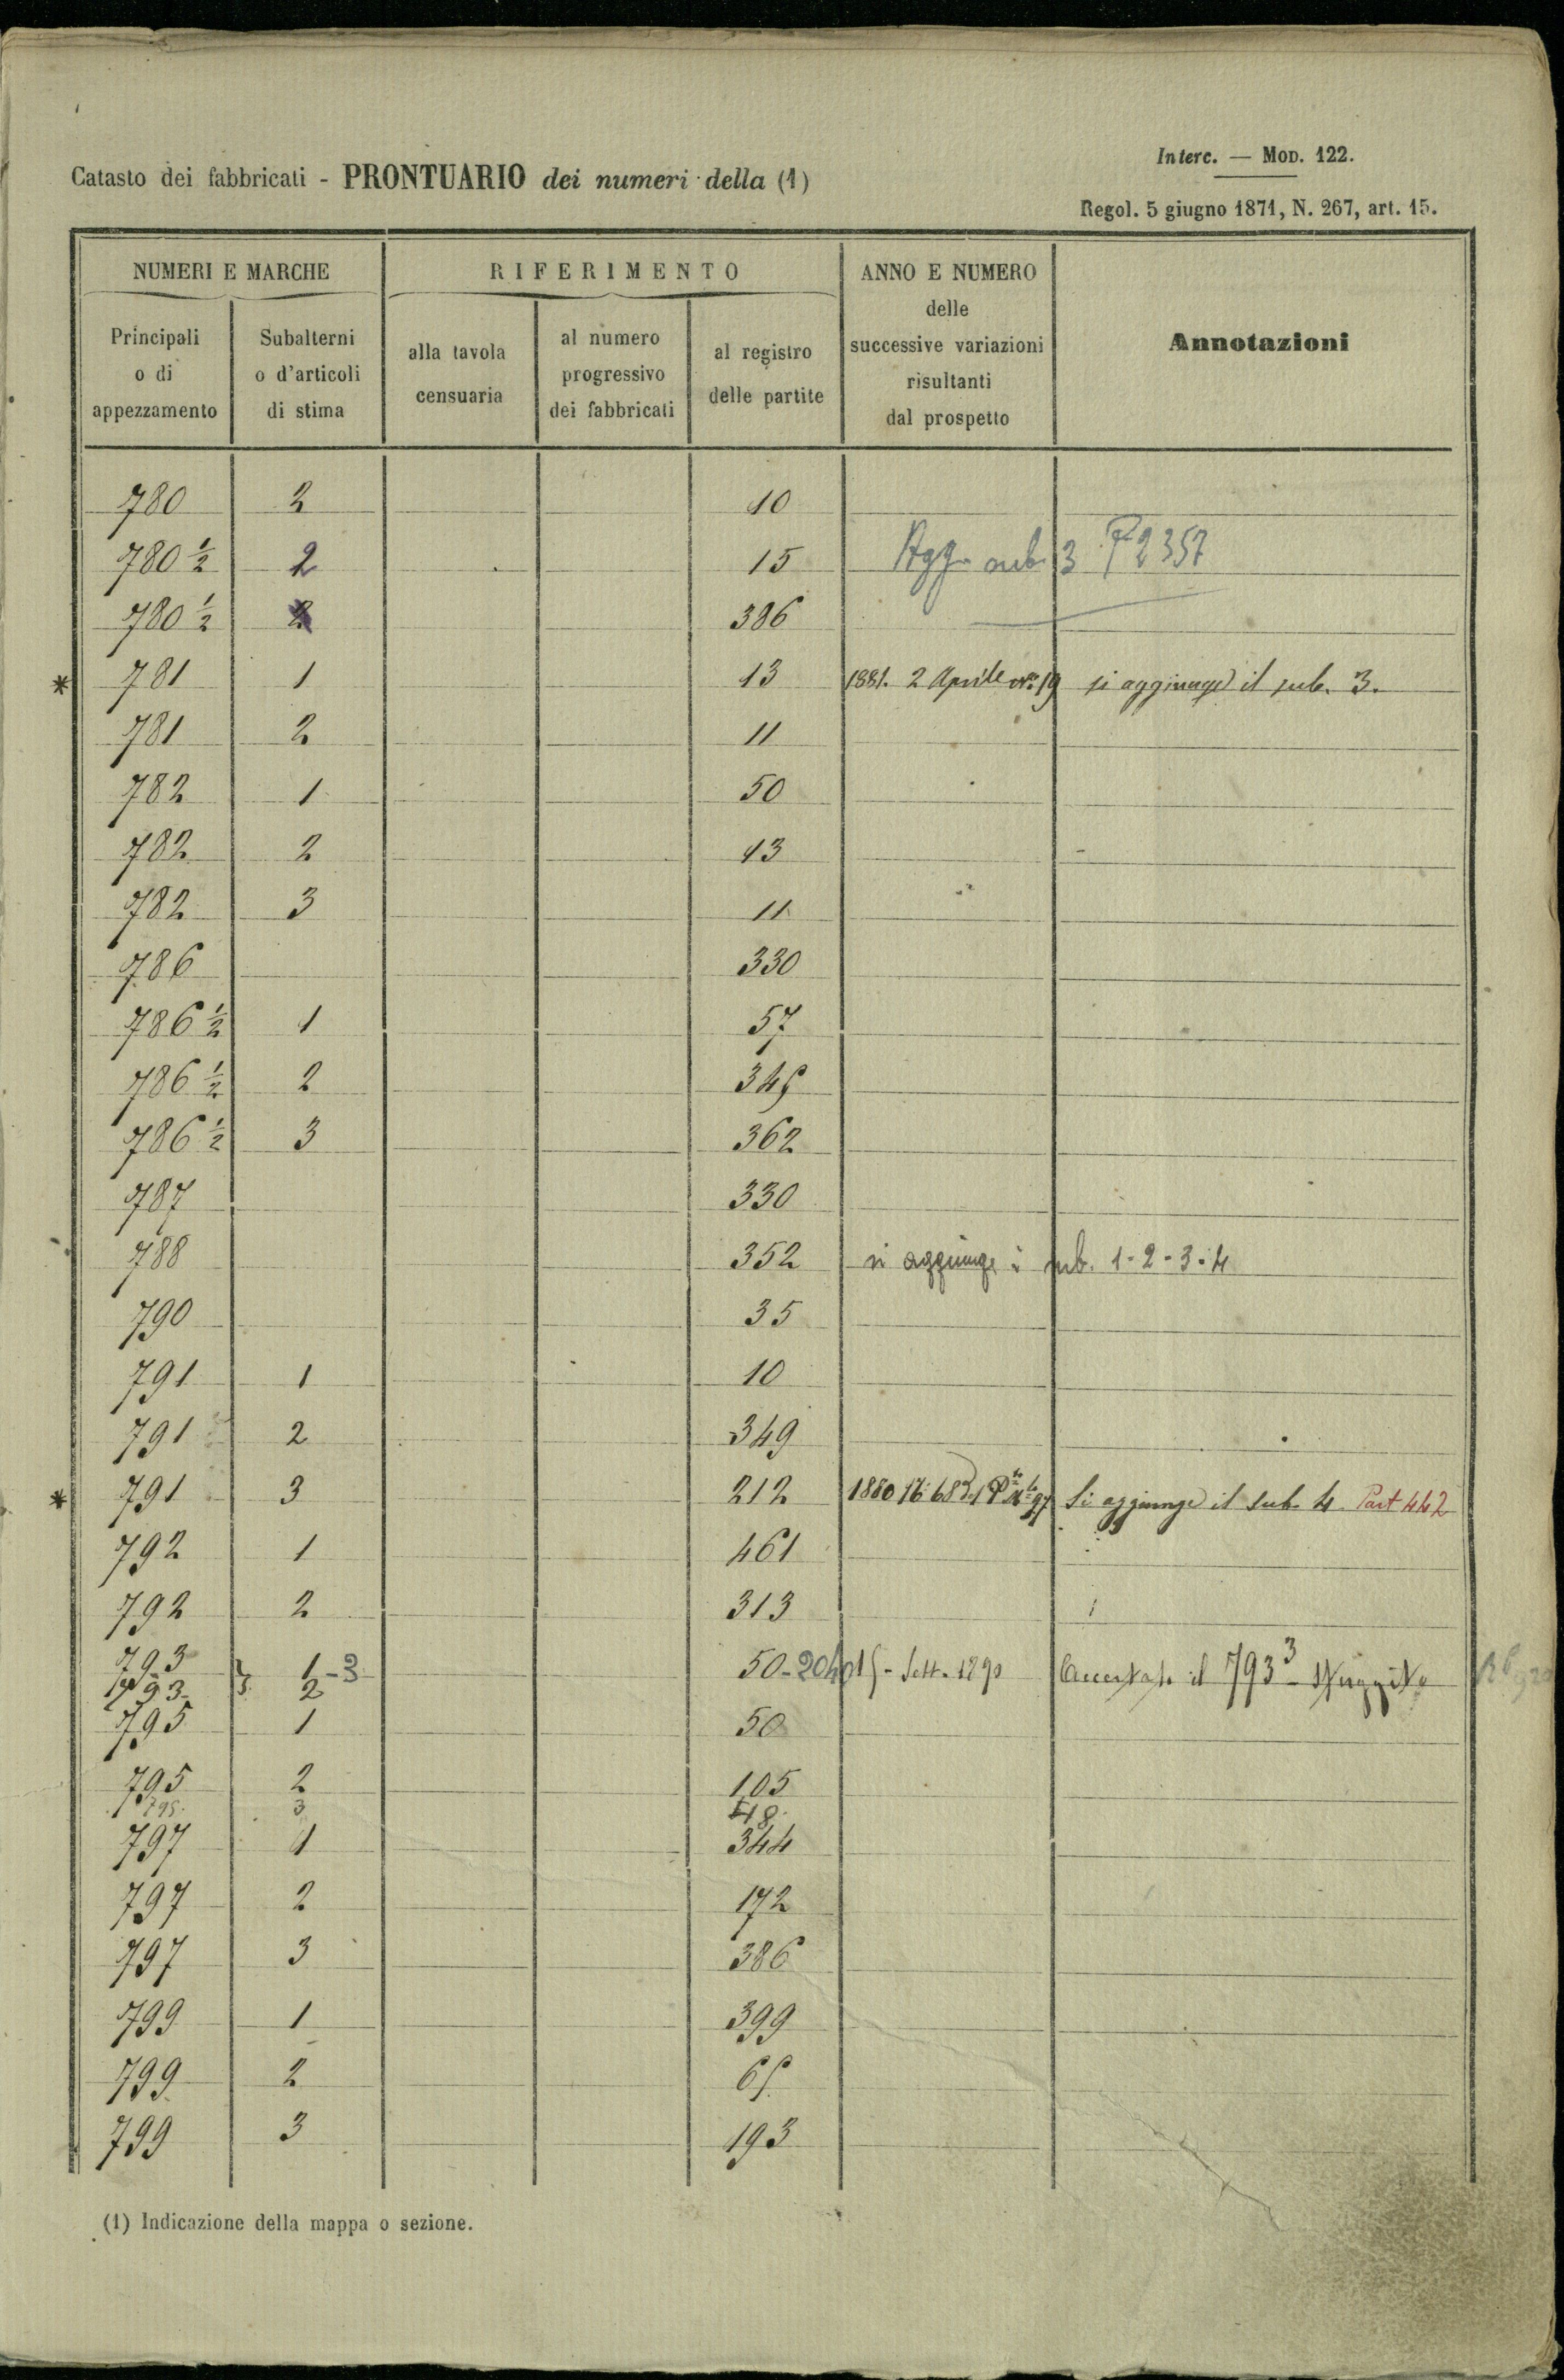 Interc. — MOD. 122.
Catasto dei fabbricati - PRONTUARIO dei numeri della (1)
Regol. 5 giugno 1871, N. 267, art. 15.
NUMERI E MARCHE
Principali
o di
appezzamento
Subalterni
o d'articoli
di stima
RIFERIMENTO
alla tavola
censuaria
al numero
progressivo
dei fabbricati
al registro
delle partite
ANNO E NUMERO
delle
successive variazioni
risultanti
dal prospetto
Annotazioni
780 2 10
780 ½ 2 15 Agg. sub. 3 P 2357
780 ½ 386
* 781 1 13 1881. 2 Aprile No. 19 si aggiunge il sub. 3.
781 2 11
782 1 50
782 2 13
782 3 11
786 330
786 ½ 1 57
786 ½ 2 345
786 ½ 3 362
787 330
788 352 si aggiunge i sub. 1-2-3-4
790 35
791 1 10
791 2 349
* 791 3 212 1880 Si aggiunge il sub 4 Part 442
792 1 461
792 2 313
793 1-3 50-2040 15-Sett. 1890 Accertato il 793 3 - sfuggito
793 2
795 1 50
795 2 105
795 3 418
797 1 344
797 2 172
797 3 386
799 1 399
799 2 65
799 3 193
(1) Indicazione della mappa o sezione.